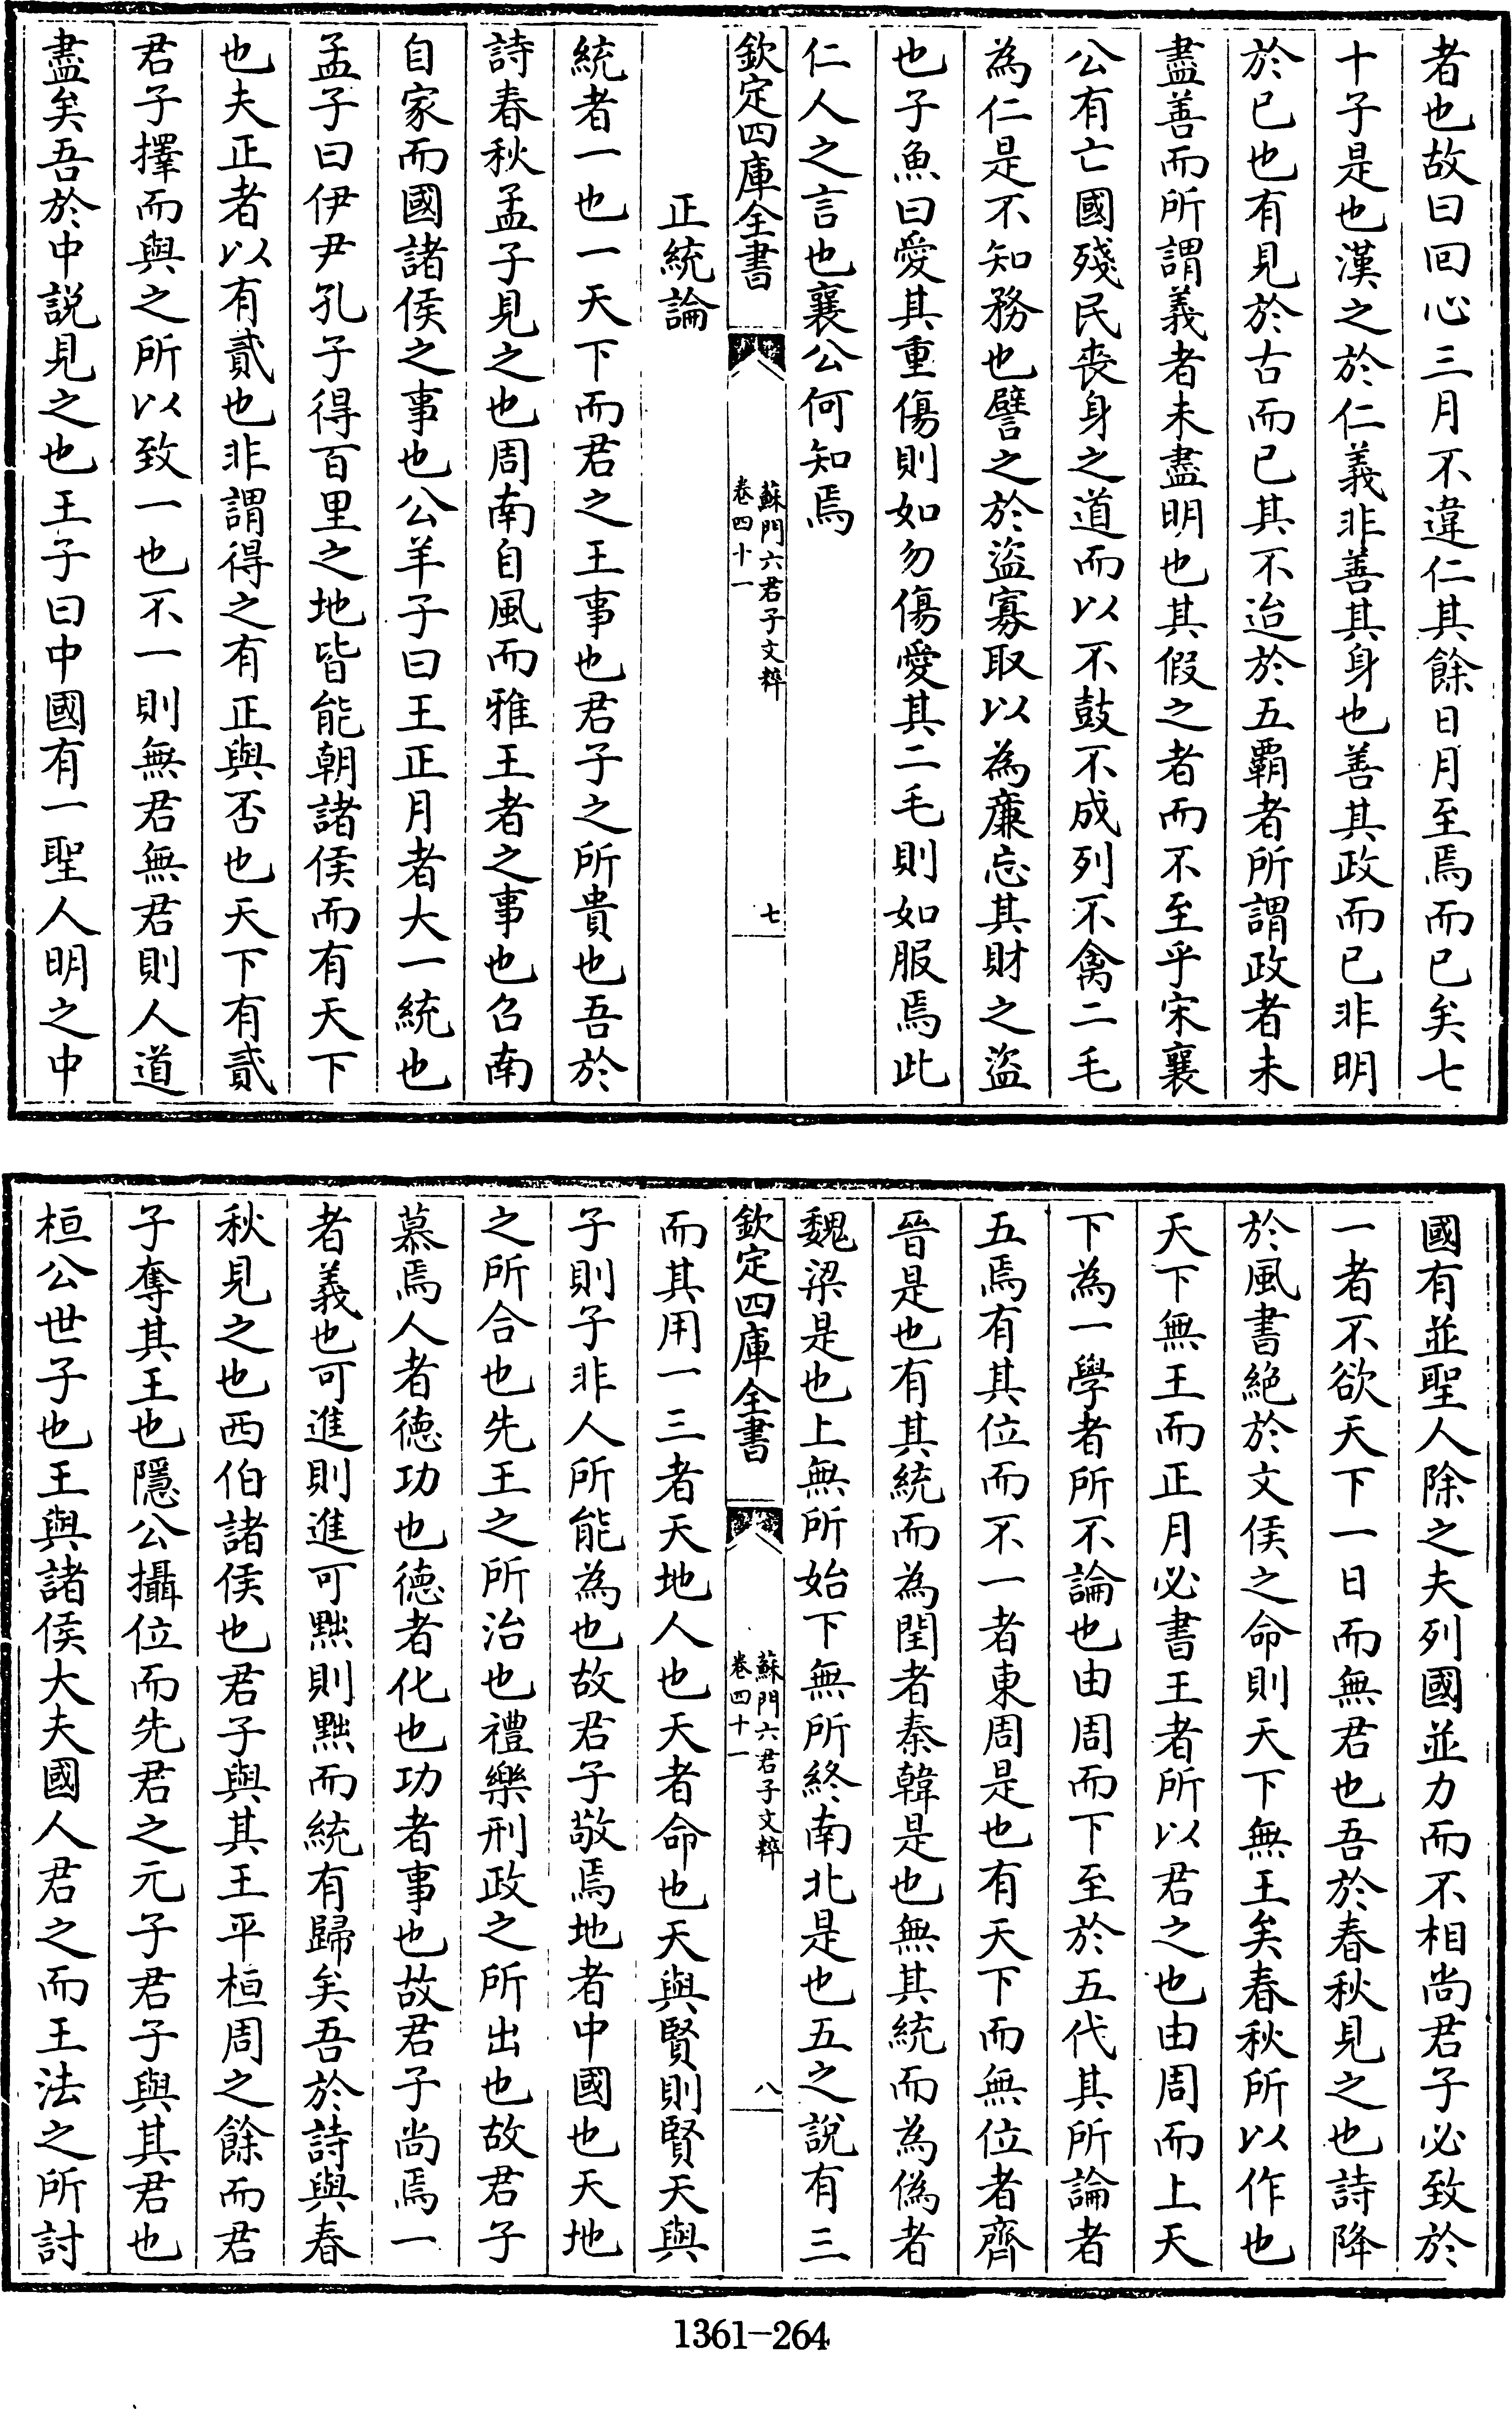 者也故曰回心三月不違仁其餘日月至焉而已矣七
十子是也漢之於仁義非善其身也善其政而已非明
於已也有見於古而已其不迨於五覇者所謂政者未
盡善而所謂義者未盡明也其假之者而不至乎宋襄
公有亡國殘民喪身之道而以不鼓不成列不禽二毛
為仁是不知務也譬之於盜寡取以為廉忘其財之盜
也子魚曰愛其重傷則如勿傷愛其二毛則如服焉此
仁人之言也襄公何知焉
欽定四庫全書
蘇門六君子文粹
卷四十一
七
正統論
統者一也一天下而君之王事也君子之所貴也吾於
詩春秋孟子見之也周南自風而雅王者之事也召南
自家而國諸侯之事也公羊子曰王正月者大一統也
孟子曰伊尹孔子得百里之地皆能朝諸侯而有天下
也夫正者以有貳也非謂得之有正與否也天下有貳
君子擇而與之所以致一也不一則無君無君則人道
盡矣吾於中說見之也王子曰中國有一聖人明之中
國有並聖人除之夫列國並力而不相尚君子必致於
一者不欲天下一日而無君也吾於春秋見之也詩降
於風書絕於文侯之命則天下無王矣春秋所以作也
天下無王而正月必書王者所以君之也由周而上天
下為一學者所不論也由周而下至於五代其所論者
五焉有其位而不一者東周是也有天下而無位者齊
晉是也有其統而為閏者秦韓是也無其統而為偽者
魏梁是也上無所始下無所終南北是也五之說有三
欽定四庫全書
蘇門六君子文粹
卷四十一
八
而其用一三者天地人也天者命也天與賢則賢天與
子則子非人所能為也故君子敬焉地者中國也天地
之所合也先王之所治也禮樂刑政之所出也故君子
慕焉人者德功也德者化也功者事也故君子尚焉一
者義也可進則進可黜則黜而統有歸矣吾於詩與春
秋見之也西伯諸侯也君子與其王平桓周之餘而君
子奪其王也隱公攝位而先君之元子君子與其君也
桓公世子也王與諸侯大夫國人君之而王法之所討
1361-264